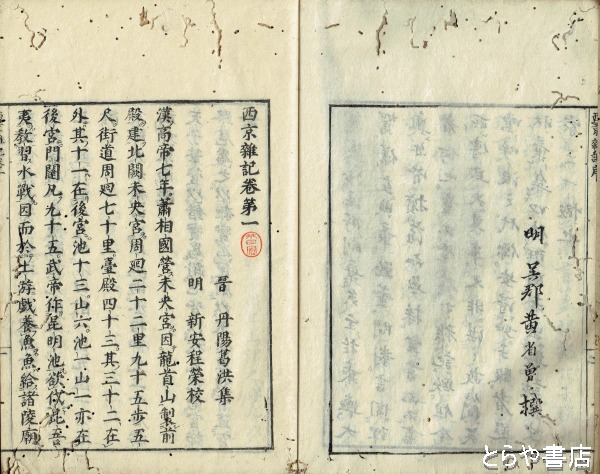 明 吳郡黃省曾撰
西京雜記卷第一
晉 丹陽葛洪集
明 新安程榮校
漢高帝七年蕭相國營未央宮因龍首山製前
殿建北闕未央宮周迴二十二里九十五步五
尺街道周迴七十里臺殿四十三其三十二在
外其十一在後宮池十三山六池一山一亦在
後宮門闥凡九十五武帝作昆明池欲伐昆吾
夷教習水戰因而於上游戲養魚魚給諸陵廟
とらや書店